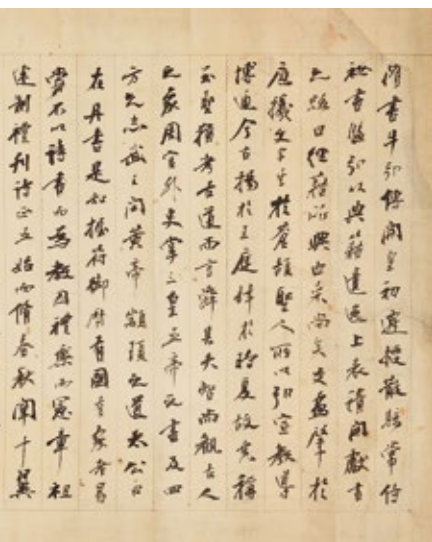 隋書牛弘傳開皇初遷授散騎常侍
祕書監弘以典籍遺逸上表請開獻書
之路曰經籍所興由來尚矣爻畫肇於
庖犧文字生於蒼頡聖人所以弘宣教導
博通今古揚於王庭肆於時夏故堯稱
至聖猶考古道而言舜其大智而觀古人
之象周官外史掌三皇五帝之書及四
方之志武王問黃帝顓頊之道太公曰
在丹書是知握符御曆有國有家者曷
嘗不以詩書而爲教因禮樂而憲章祖
述制禮刊詩正五始而脩春秋闡十翼